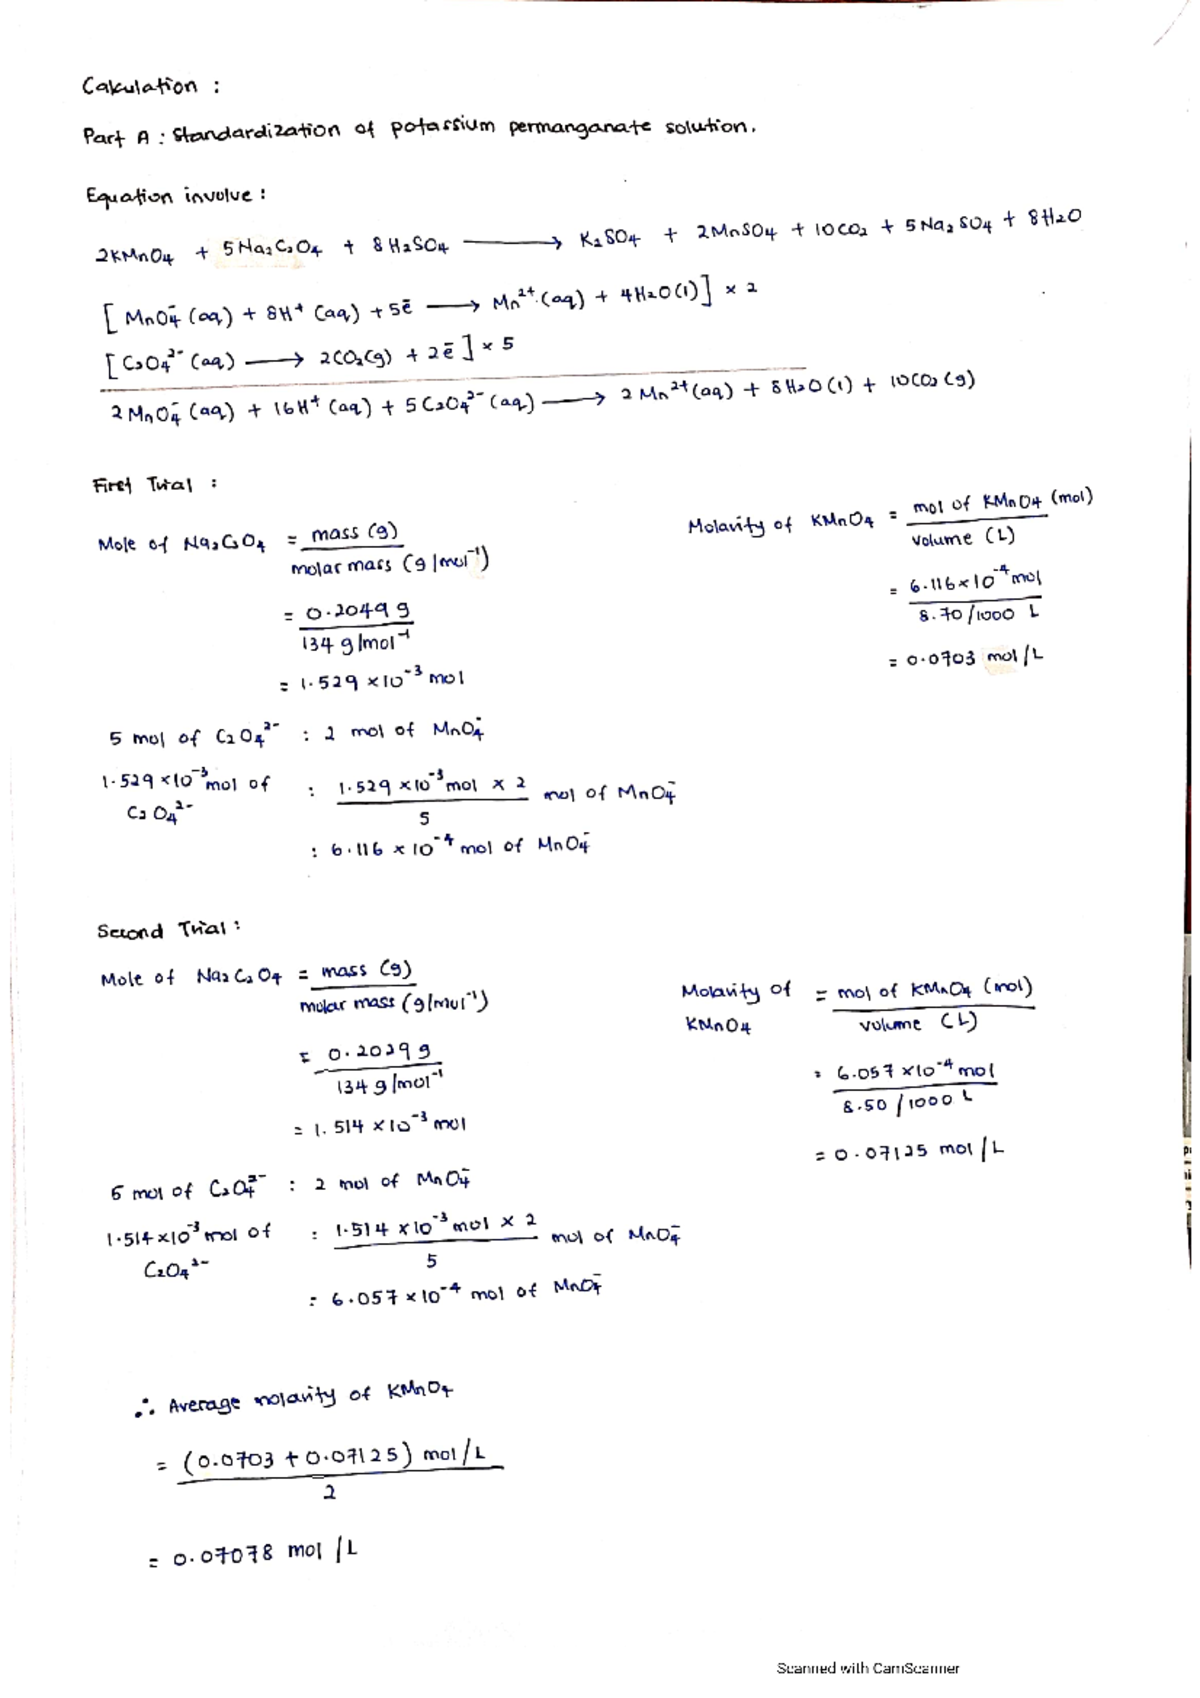 Calculation :
Part A : Standardization of potassium permanganate solution.
Equation involve :
2KMnO4 + 5Na2C2O4 + 8H2SO4 ⟶ K2SO4 + 2MnSO4 + 10CO2 + 5Na2SO4 + 8H2O
[MnO4⁻ (aq) + 8H⁺ (aq) + 5ē ⟶ Mn²⁺ (aq) + 4H2O(l)] × 2
[C2O4²⁻ (aq) ⟶ 2CO2(g) + 2ē] × 5
2MnO4⁻ (aq) + 16H⁺ (aq) + 5C2O4²⁻ (aq) ⟶ 2Mn²⁺ (aq) + 8H2O(l) + 10CO2 (g)
First Trial :
Mole of Na2C2O4 = mass (g)
molar mass (g/mol⁻¹)
= 0.2049 g
134 g/mol⁻¹
= 1.529 × 10⁻³ mol
Molarity of KMnO4 = mol of KMnO4 (mol)
volume (L)
= 6.116 × 10⁻⁴ mol
8.70/1000 L
= 0.0703 mol/L
5 mol of C2O4²⁻ : 2 mol of MnO4⁻
1.529 × 10⁻³ mol of : 1.529 × 10⁻³ mol × 2 mol of MnO4⁻
C2O4²⁻ 5
: 6.116 × 10⁻⁴ mol of MnO4⁻
Second Trial :
Mole of Na2C2O4 = mass (g)
molar mass (g/mol⁻¹)
= 0.2029 g
134 g/mol⁻¹
= 1.514 × 10⁻³ mol
Molarity of = mol of KMnO4 (mol)
KMnO4 volume (L)
= 6.057 × 10⁻⁴ mol
8.50/1000 L
= 0.07125 mol/L
5 mol of C2O4²⁻ : 2 mol of MnO4⁻
1.514 × 10⁻³ mol of : 1.514 × 10⁻³ mol × 2 mol of MnO4⁻
C2O4²⁻ 5
: 6.057 × 10⁻⁴ mol of MnO4⁻
∴ Average molarity of KMnO4
= (0.0703 + 0.07125) mol/L
2
= 0.07078 mol/L
Scanned with CamScanner